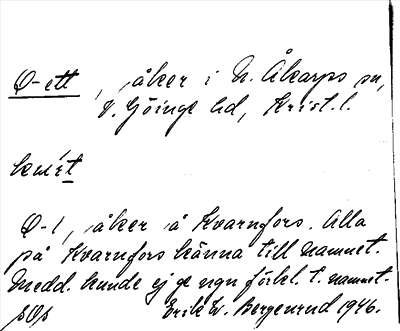 O-ett, åker i N. Åkarps sn,
V. Göinge hd, Krist. l.
O-1, åker å Kvarnfors. Alla
på Kvarnfors känna till namnet.
Medd. kunde ej ge ngn förkl. t. namnet.
Erik W. Bergenrud 1946.